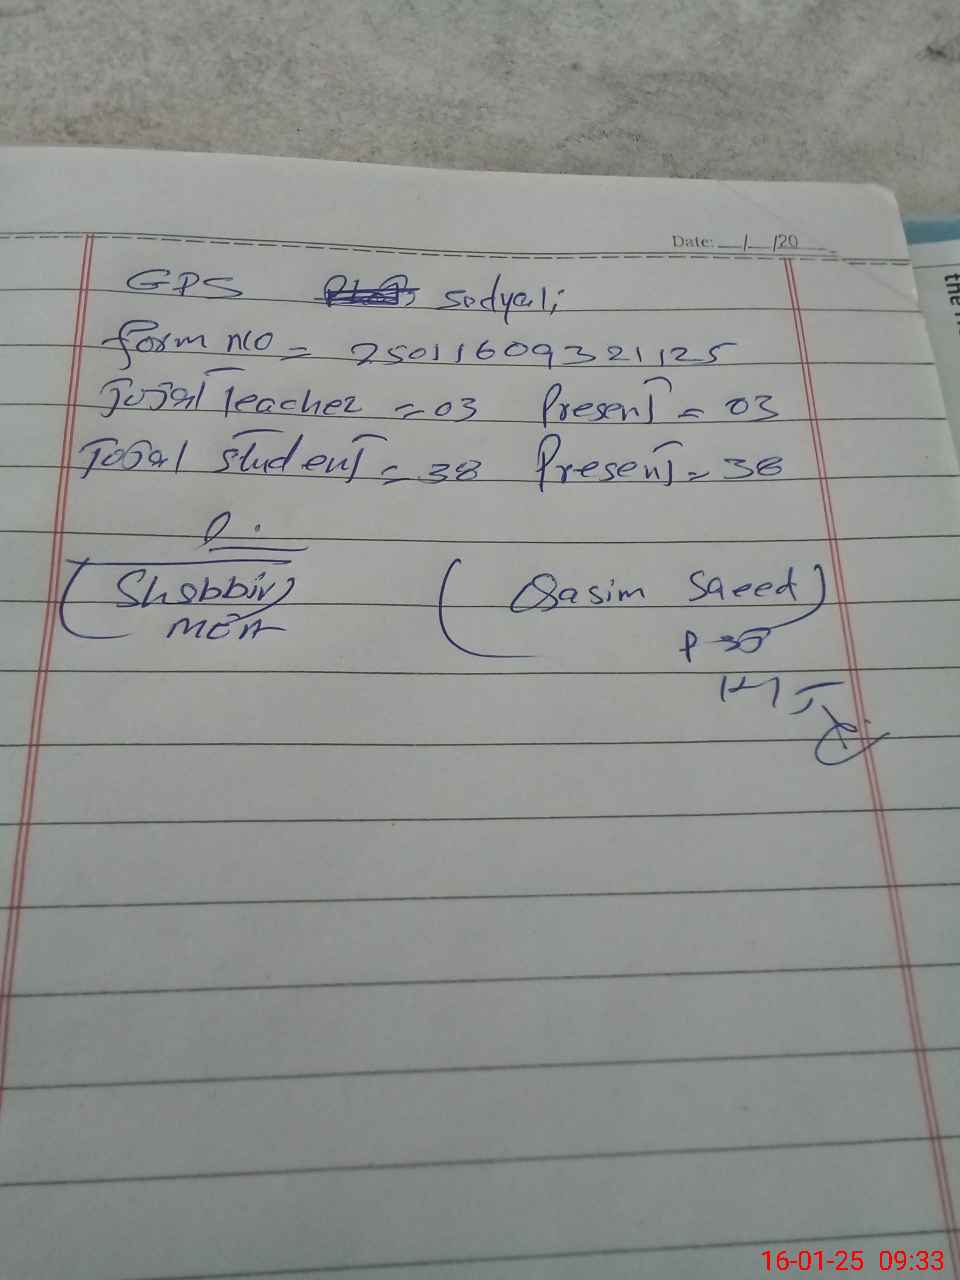 Date: __/__/20
GPS sodyali
form no = 25011609321125
Total Teacher = 03 Present = 03
Total student = 38 Present = 38
(Shabbir)
MEA
(Qasim Saeed)
HT
the
16-01-25 09:33